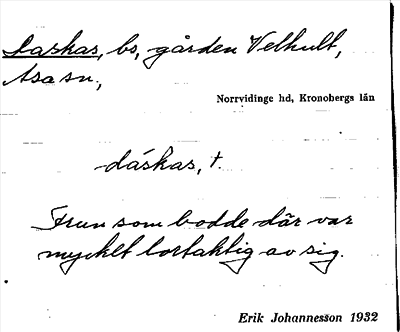 Laskas, bs, gården Velhult,
Asa sn,
Norrvidinge hd, Kronobergs län
dáskas, †.
Frun som bodde där var
mycket lortaktig av sig.
Erik Johannesson 1932